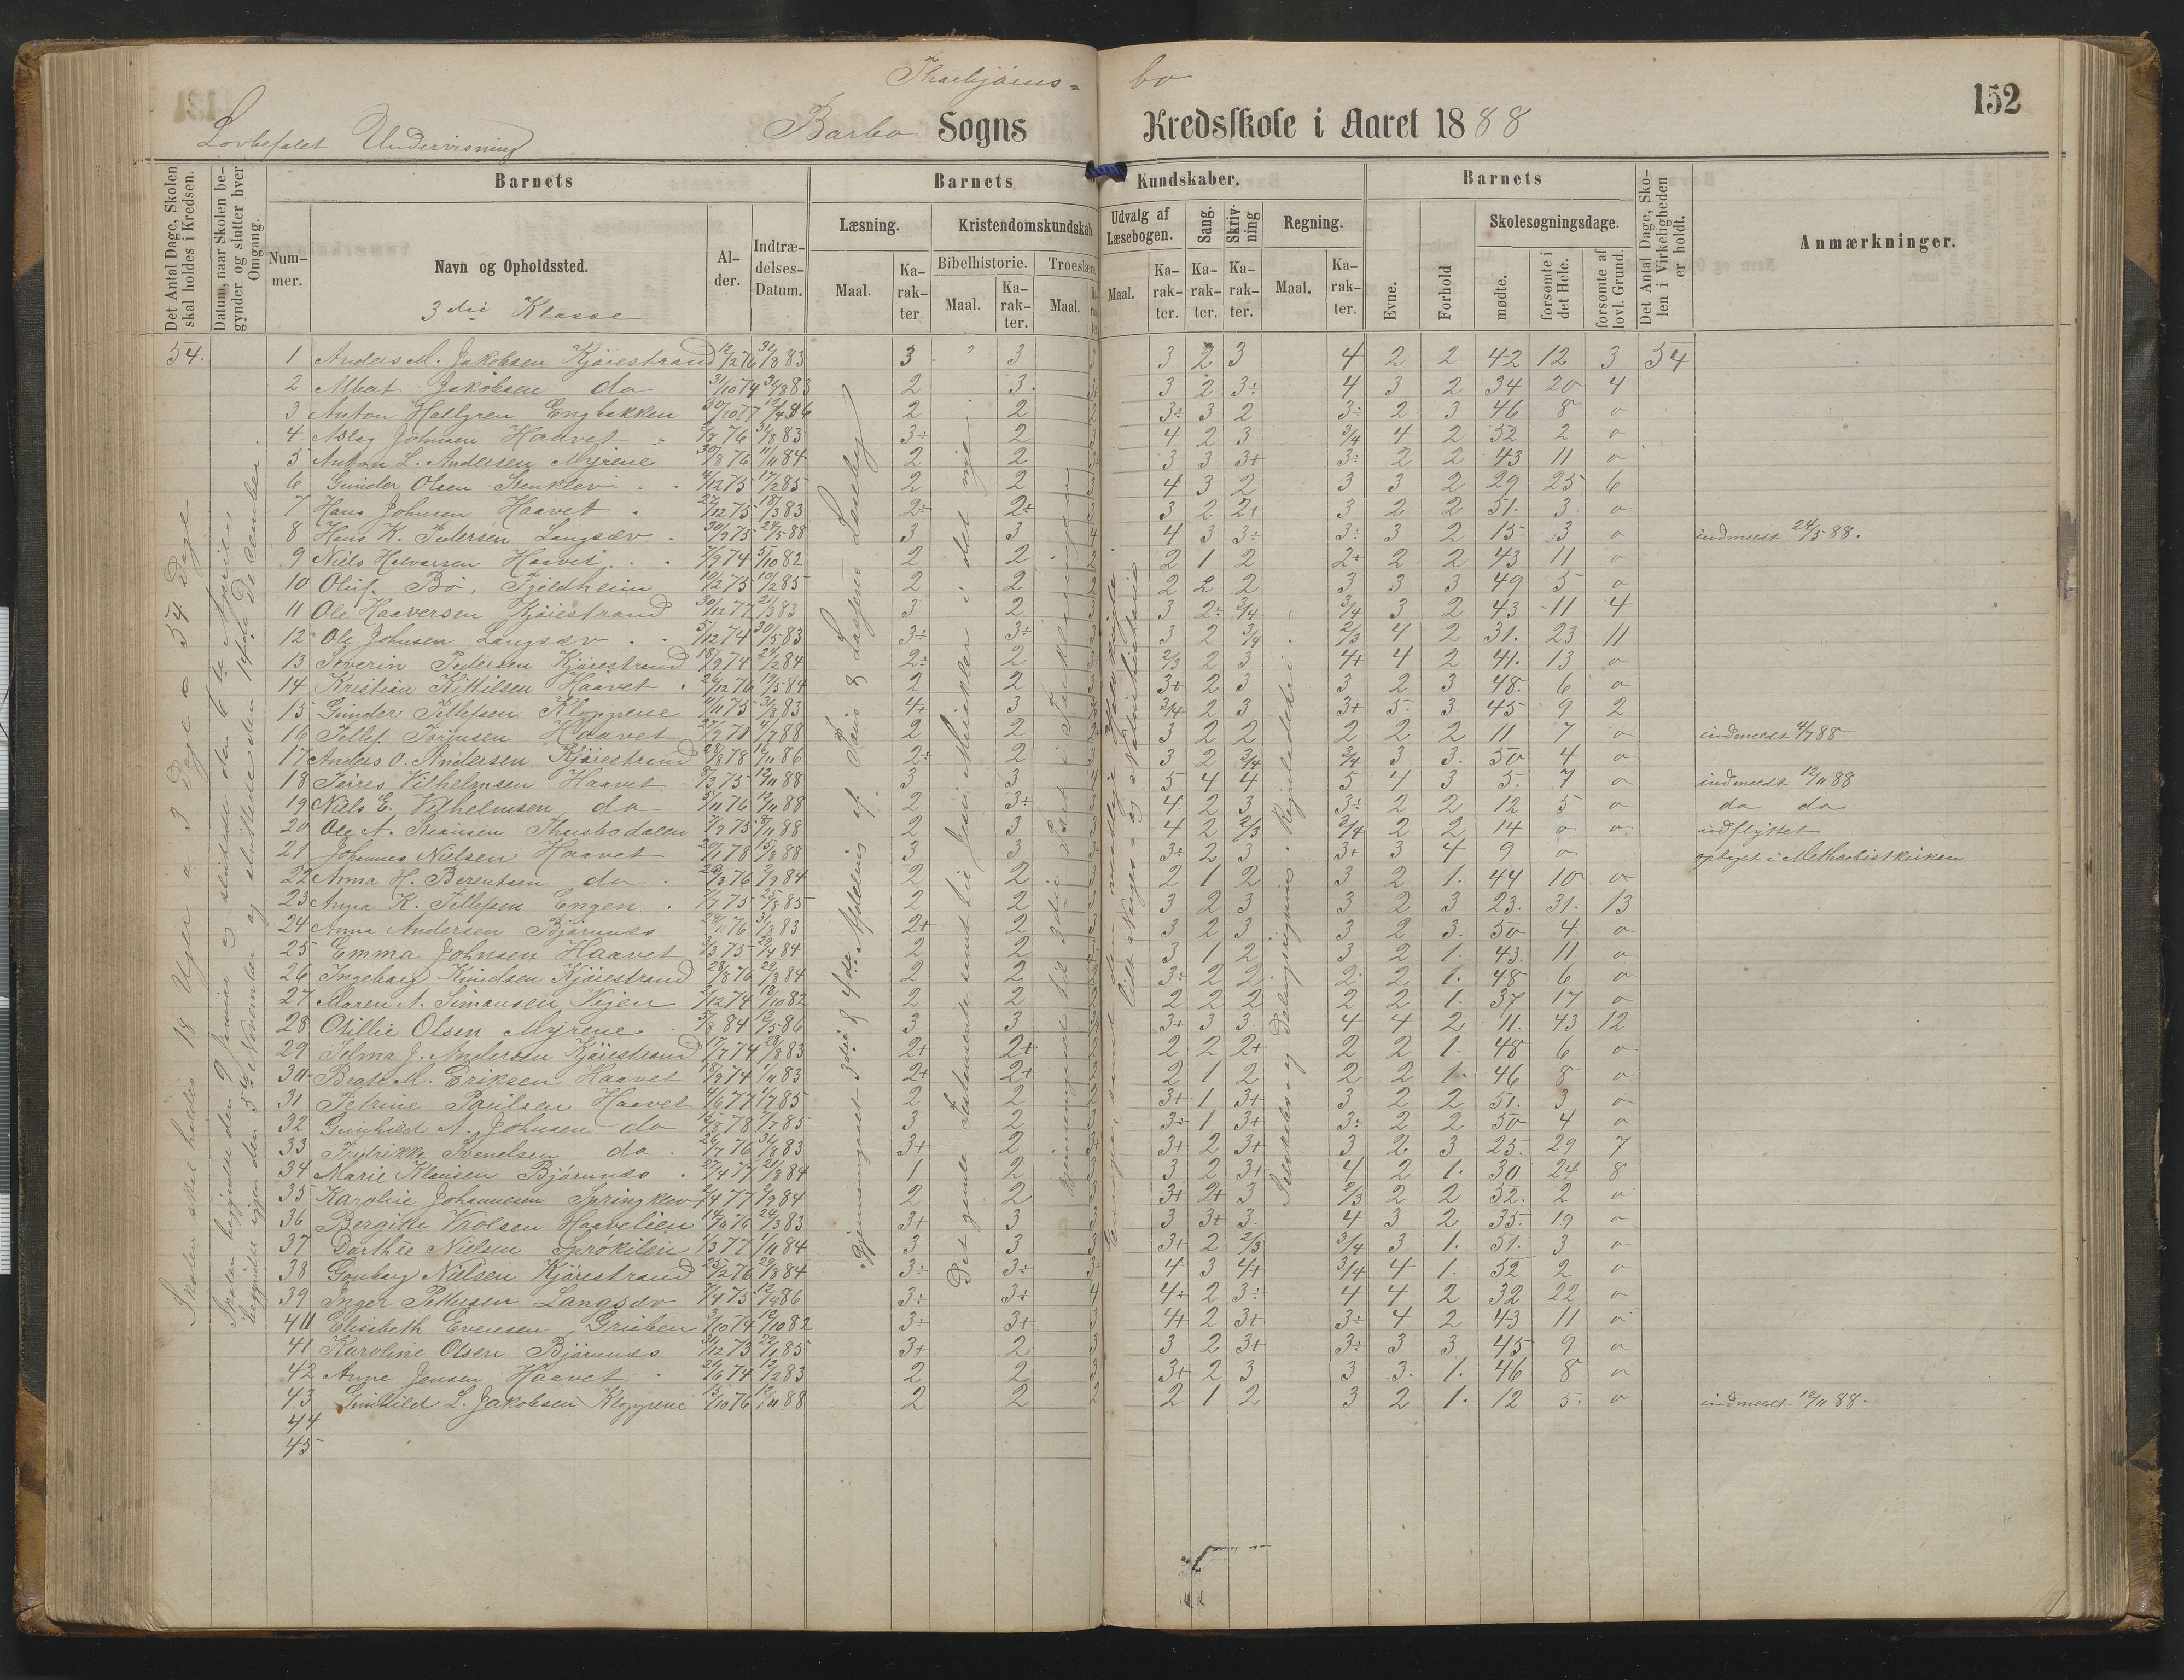 Thorbjörns= bo
152
Lovbefalet Undervisning Barbo Sogns Kredsskole i Aaret 1888
Det Antal Dage, Skolen skal holdes i Kredsen.
Datum, naar Skolen begynder og slutter hver Omgang.
Barnets
Num-mer.
Navn og Opholdssted.
3die Klasse
Al-der.
Indtræ-delses-Datum.
Barnets Kundskaber.
Læsning.
Maal.
Ka-rak-ter.
Kristendomskundskab.
Bibelhistorie.
Maal.
Ka-rak-ter.
Troeslære.
Maal.
Udvalg af Læsebogen.
Maal.
Ka-rak-ter.
Sang.
Ka-rak-ter.
Skriv-ning
Ka-rak-ter.
Regning.
Maal.
Ka-rak-ter.
Barnets
Evne.
Forhold
Skolesøgningsdage.
mødte.
forsømte i det Hele.
forsømte af lovl. Grund.
Det Antal Dage, Sko-len i Virkeligheden er holdt.
Anmærkninger.
Skolen skal holdes 18 Uger a 3 Dage = 54 Dage
54.
1 Anders M. Jakobsen Kjørestrand 12/2 76 31/8 83 3 3 3 3 2 3 4 2 2 42 12 3 54
2 Albert Jakobsen do 31/10 74 31/8 83 2 3 3 2 3÷ 4 3 2 34 20 4
3 Anton Hallgren Engbakken 30/10 77 12/4 86 2 2 3÷ 3 2 3÷ 2 3 46 8 o
4 Aslag Johnsen Haavet 31/8 83 3÷ 2 4 2 3 3/4 4 2 52 2 o
5 Anton L. Andersen Myrene 30/8 76 11/11 84 2 2 3 3 3+ 3÷ 2 2 43 11 o
6 Gunder Olsen Stenklev 4/12 75 17/2 85 2 2 4 3 2 3 3 2 29 25 6
7 Hans Johnsen Haavet 27/12 75 18/3 83 2÷ 2÷ 3 2 2+ 3 2 2 51. 3 o
8 Hans K. Pedersen Langsæv 30/9 75 24/5 88 3 3 4 4 3 3÷ 3÷ 3 2 15 3 o indmeldt 24/5 88.
9 Niels Halvorsen Haavet 7/9 74 5/10 82 2 2 2 1 2 2+ 2 2 43 11 o
10 Oluf Bö, Fjeldheim 10/2 75 19/2 85 2 2 2 2 2 3 3 3 49 5 o
11 Ole Haaversen Kjørestrand 30/12 77 21/5 83 3 2 3 2÷ 3/4 3/4 3 2 43 11 4
12 Ole Johnsen Langsæv 5/12 74 30/5 83 3÷ 3÷ 3 2 3/4 2/3 4 2 31. 23 11
13 Severin Pedersen Kjørestrand 18/9 74 24/2 84 2÷ 2 2/3 2 3 4+ 4 2 41. 13 o
14 Kristian Kittilsen Haavet 26/12 76 19/5 84 2 2 3+ 2 3 3 2 3 48. 6 o
15 Gunder Tellefsen Kloppene 11/11 75 31/8 83 4+ 3 3/4 2 3 3+ 5 3 45 9 2
16 Tellef Torjusen Haavet 4/7 88 2 2 3 2 2 2 2 2 11 7 o indmeldt 4/7 88
17 Anders O. Andersen Kjørestrand 28/8 78 16/11 86 2÷ 2 3 2 3/4 3/4 3 3. 50 4 o
18 Vilhelmsen Haavet 12/11 88 3 3 4 5 4 4 5 4 3 5. 7 o indmeldt 12/11 88
19 Niels E. Vilhelmsen do 5/11 76 12/11 88 2 3÷ 4 2 3 3÷ 2 2 12 5 o do do
20 Ole A. 7/7 75 8/11 88 2 3 4 2 2/3 3/4 2 2 14 o o udflyttet
21 Johannes Nielsen Haavet 20/1 78 5/8 88 3 3 3÷ 2 3 3+ 3 4 9 o optaget i Methodistkirken
22 Anna H. Berentsen do 29/3 76 2/9 84 2 2 2 1 2 3 2 1. 44 10 o
23 Anna K. Tellefsen Engen 7/7 75 25/8 85 2 2 3 2 3 3 2 3 23. 31. 13
24 Anna Andersen Björnnes 31/8 83 2+ 2 3 2 3 3 2 3. 50 4 o
25 Emma Johnsen Haavet 3/3 75 29/4 84 2 2 3 1 2 3 2 1. 43. 11 o
26 Ingeborg Knudsen Kjørestrand 28/8 76 29/8 84 2 2 3÷ 2 2 2 2 1. 48 6 o
27 Maren A. Simonsen Vejen 2/12 74 18/10 82 2 2 2 2 2 2 2 1. 37 17 o
28 Otillie Olsen Myrene 5/8 84 12/5 86 3 3 3+ 3 3 4 4 2 11. 43 12
29 Selma J. Andersen Kjørestrand 17/7 74 28/8 83 2+ 2+ 2 2 2+ 2 2 1. 48 6 o
30 Beate M. Eriksen Haavet 18/9 74 1/11 83 2+ 2+ 2 1 2 2 2 1. 46 8 o
31 Petrine Paulsen Haavet 4/6 77 1/7 85 2 2 3+ 1 3+ 3 2 2 51. 3 o
32 Gunhild A. Johnsen do 15/8 78 7/7 85 3 2 3÷ 1 3+ 3÷ 2 2 50 4 o
33 Fredrikke Svendsen do 26/7 76 31/8 83 3+ 2 3+ 2 3+ 3 2 3 25. 29 7
34 Marie Klausen Björnnes 27/4 77 21/8 84 1 2 3 2 3+ 4 2 1. 30 24 8
35 Karoline Johannesen Springklev 2/4 77 2/9 84 2 2 3+ 2+ 3 2/3 2 2 52. 2 o
36 Bergitte Vrolsen Haavelien 24/3 83 3+ 3 3 3+ 3. 4 3 2 35. 19 o
37 Dorthée Nielsen 1/3 77 1/11 84 3 3 3+ 2 2/3 3/4 3 1. 51. 3 o
38 Gonborg Nielsen Kjørestrand 25/2 76 29/8 84 3÷ 3÷ 4 3 4+ 3/4 4 1. 52 2 o
39 Inger Pettersen Langsæv 7/4 75 12/4 86 3÷ 3÷ 4 4÷ 2 3÷ 4 4 2 32 22 o
40 Elisabeth Evensen Gruben 3/10 74 12/10 82 3÷ 3+ 3 4+ 2 3+ 3÷ 4 2 43 11 o
41 Karoline Olsen Björnnes 31/12 73 22/1 85 3+ 2 3 3 2 3+ 3÷ 3 3 45 9 o
42 Anne Jensen Haavet 24/6 74 12/2 83 2 2 3 3+ 2 3 3 3. 1. 46 8 o
43 Gunhild L. Jakobsen Kloppene 13/10 76 12/11 88 2 2 2 2 1 2 3 2 1. 12 5. o indmeldt 12/11 88.
44
45